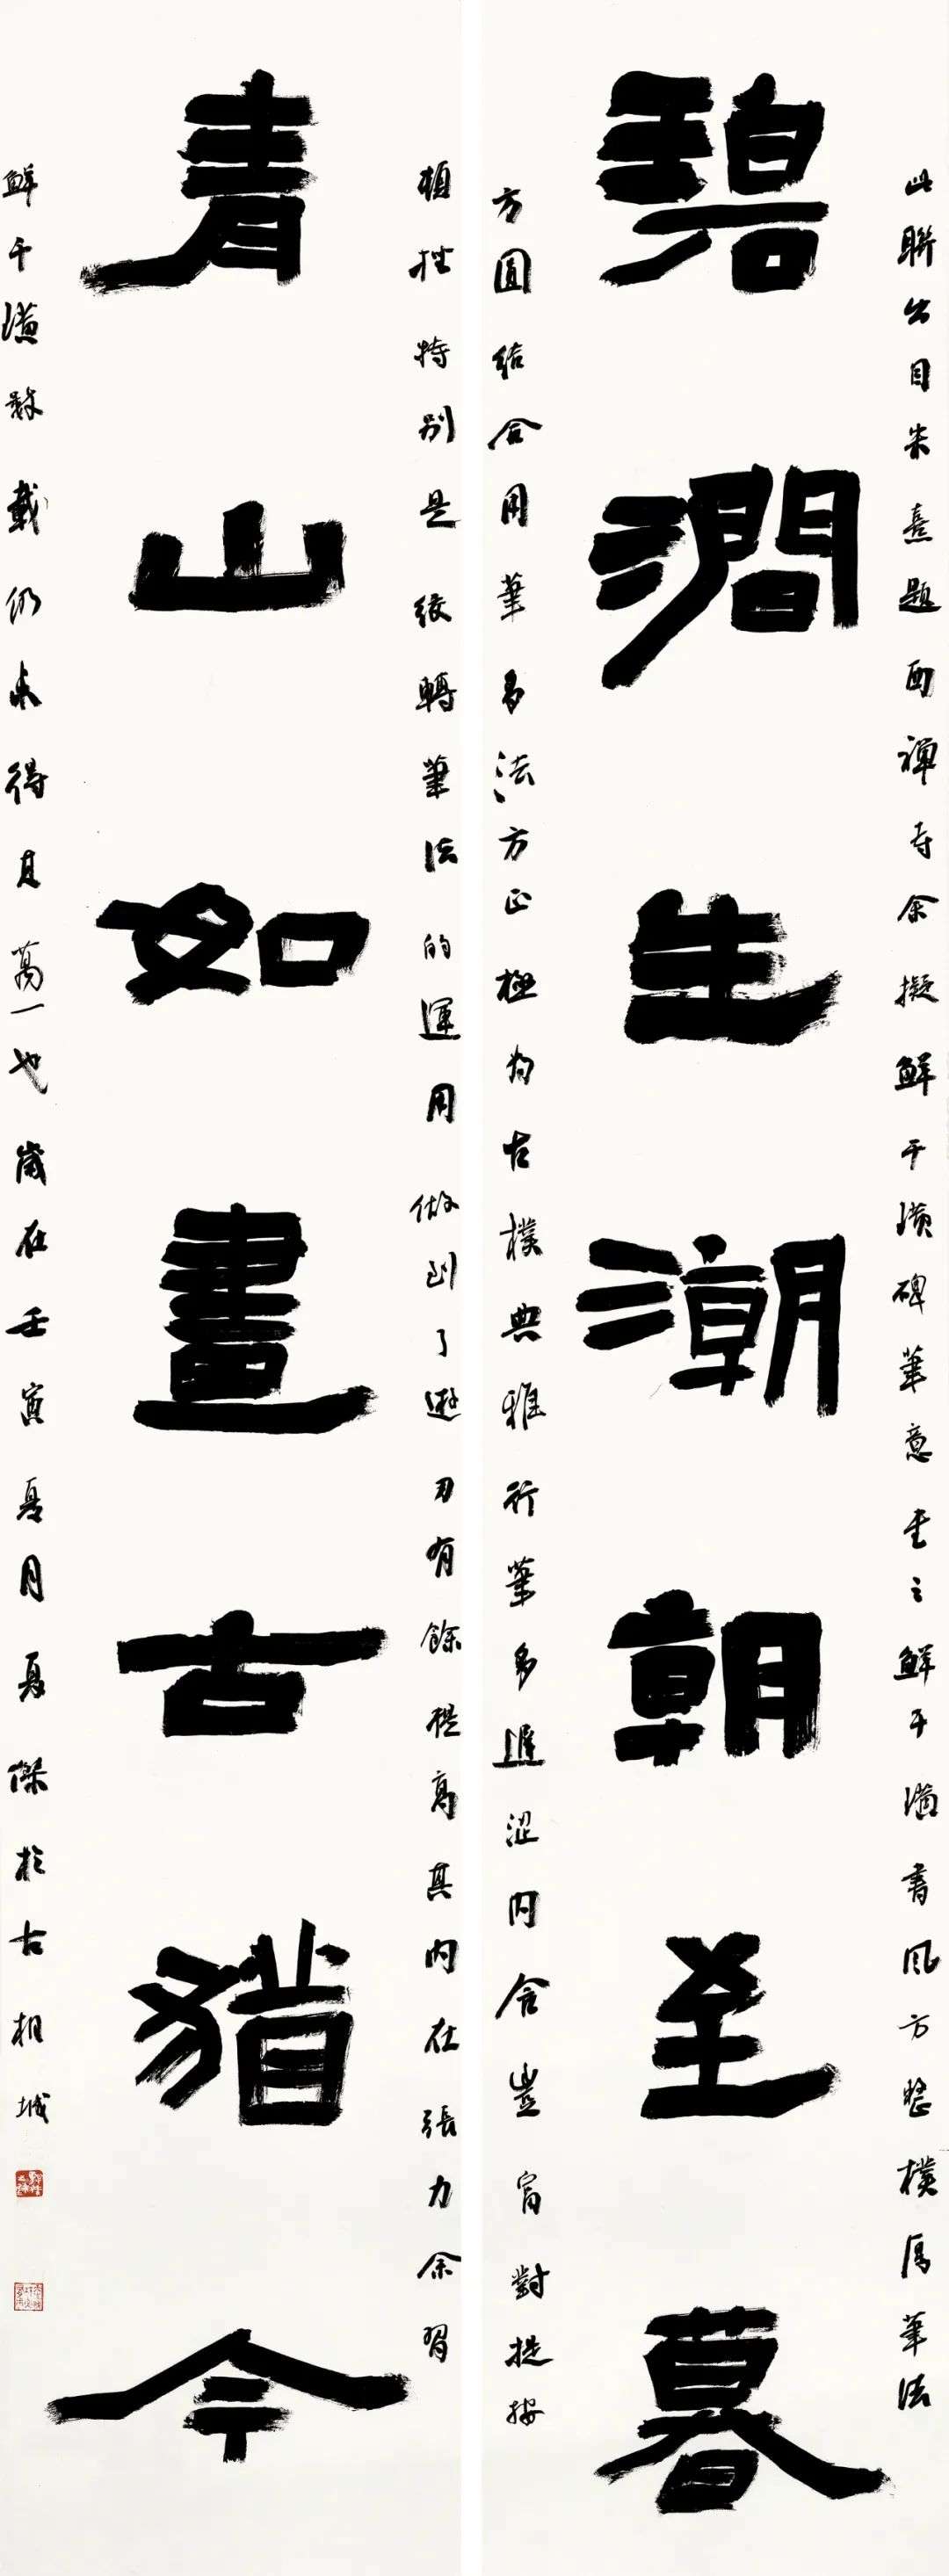 此聯出自朱熹題西禪寺余擬鮮于璜碑筆意書之鮮于璜書風方整樸厚筆法
碧澗生潮朝至暮
方圓結合用筆多法方正極為古樸典雅行筆多遲澀內含豐富對提按
頓挫特別是絞轉筆法的運用做到了遊刃有餘提高其內在張力余習
青山如畫古猶今
鮮于璜數載仍未得其萬一也歲在壬寅夏月夏傑於古相城